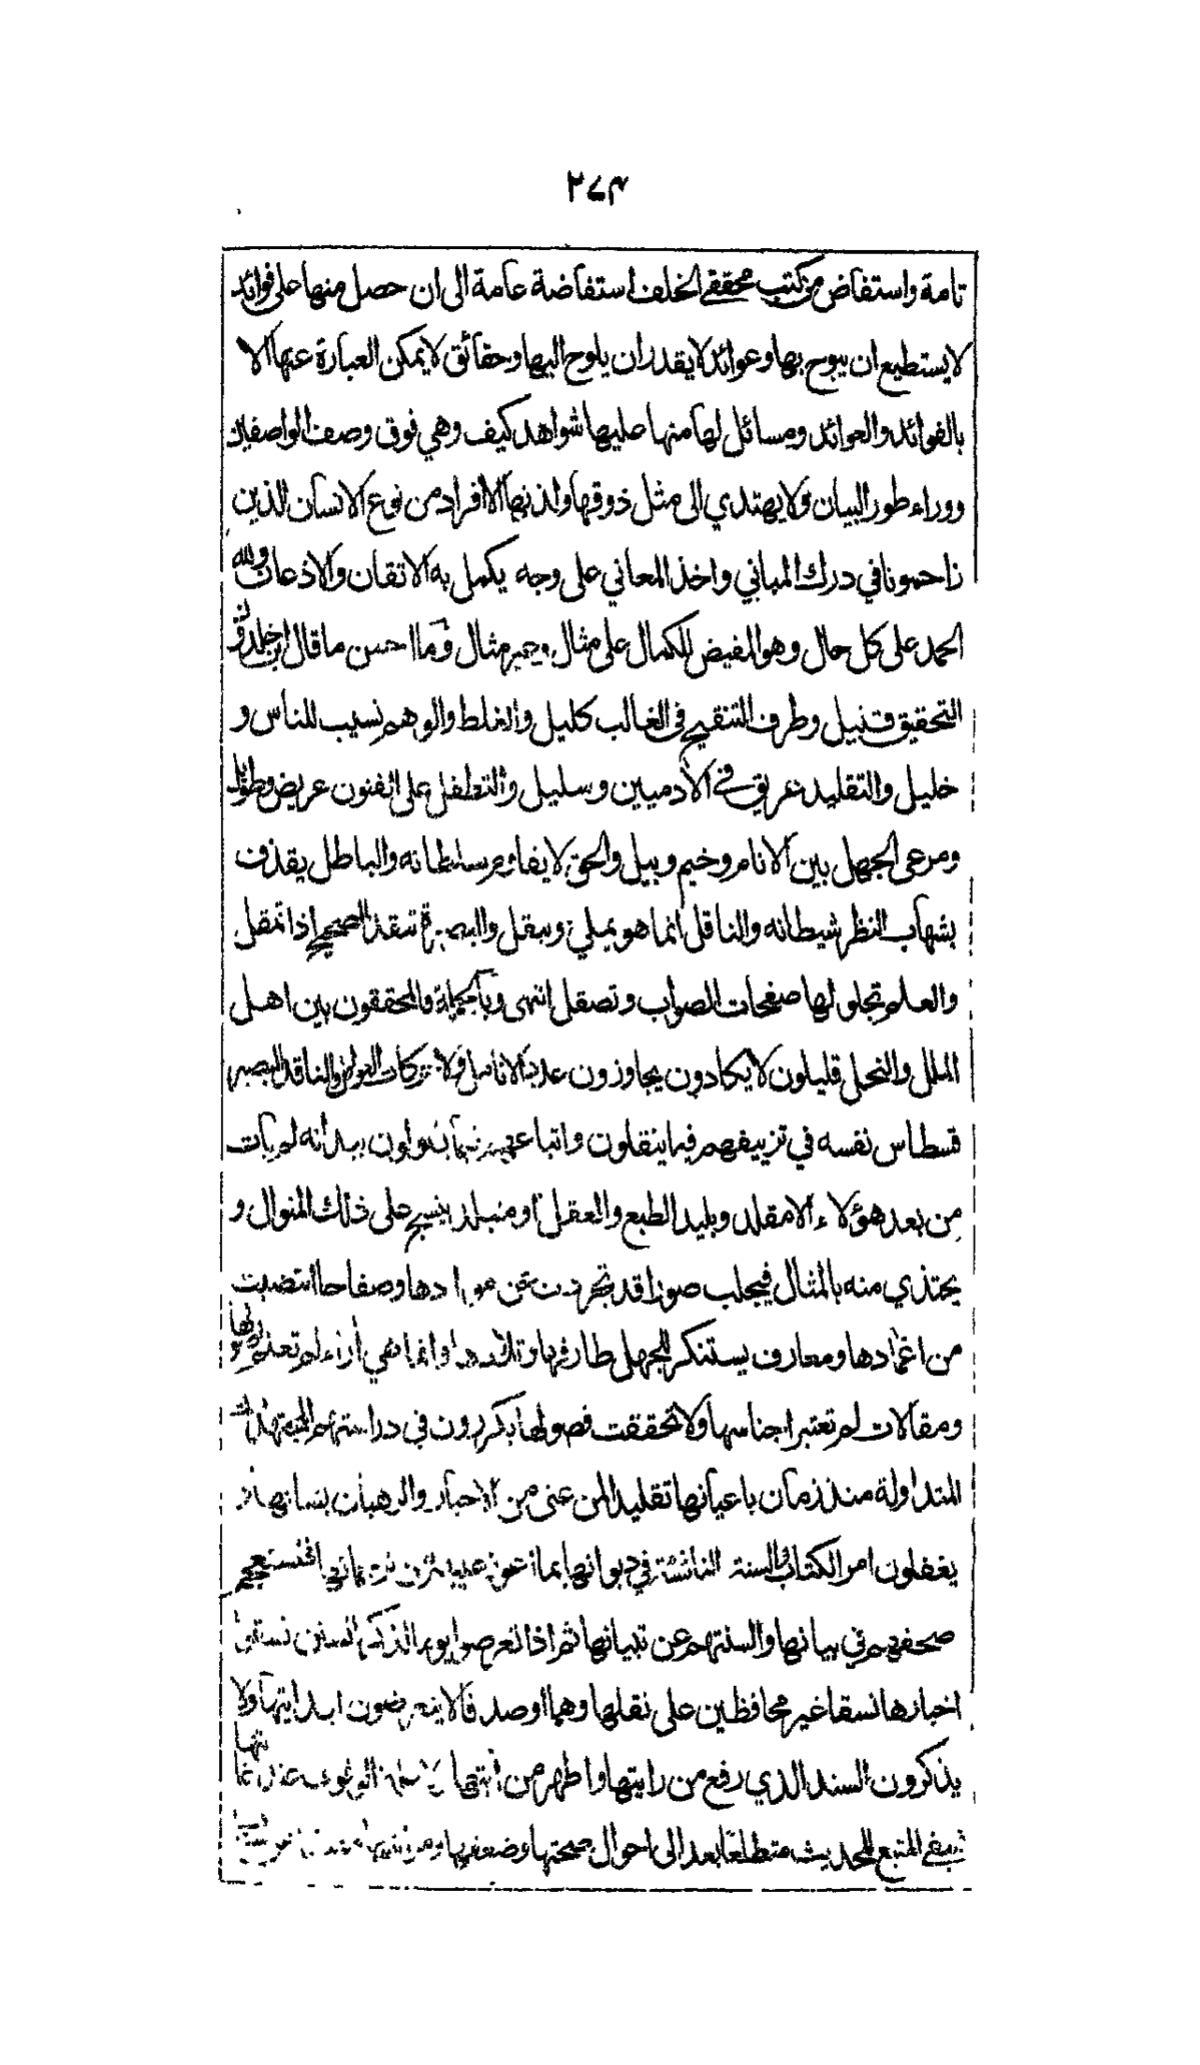 ٢٧٣
تامة واستفاض من كتب محققي الخلف استفاضة عامة الى ان حصل منها على فوائد
لا يستطيع ان يبوح بها وعوائد لا يقدر ان يلوح اليها وحقائق لا يمكن العبارة عنها الا
بالفوائد والعوائد ومسائل لها منها عليها شواهد كيف وهي فوق وصف الواصفين
ووراء طور البيان ولا يهتدي الى مثل ذوقها ولذتها الا افراد من نوع الانسان الذين
زاحمونا في درك المباني واخذ المعاني على وجه يكمل به الاتقان والاذعان ولله
الحمد على كل حال وهو المفيض للكمال على مثال وغير مثال وما احسن ما قال ابن خلدون
التحقيق قليل وطرف التنقيح في الغالب كليل والغلط والوهم نسيب للناس و
خليل والتقليد عريق في الآدميين وسليل والتطفل على الفنون عريض وطويل
ومرعى الجهل بين الانام وخيم وبيل والحق لا يقاوم سلطانه والباطل يقذف
بشهاب النظر شيطانه والناقل انما هو يملي وينقل والبصيرة تنقد الصحيح اذا تمقل
والعلم تجلو لها صفحات الصواب وتصقل انتهى وبالجملة فالمحققون بين اهل
الملل والنحل قليلون لا يكادون يجاوزون عدد الانامل ولا حركات العوامل والناقد البصير
قسطاس نفسه في تزييفهم فيما ينقلون واتباعهم فيما يقولون بيد انه لم يأت
من بعد هؤلاء الا مقلد وبليد الطبع والعقل او متبلد ينسج على ذلك المنوال و
يحتذي منه بالمثال فيجلب صورا قد تجردت عن موادها وصفاحا انتضيت
من اغمادها ومعارف يستنكر للجهل طارفها وتلادها وانما هي أراء لم تعلم اصولها
ومقالات لم تعتبر اجناسها ولا تحققت فصولها يكررون في دراستهم
المتداولة منذ زمان باعيانها تقليدا لمن عنى من الاحبار والرهبان بشانها و
يغفلون امر الكتاب والسنة الناشئة في ديوانها بما اعوز عليهم من ترجمانها فتستعجم
صحفهم في بيانها والسنتهم عن تبيانها ثم اذا تعرضوا يوما لذكر السنن نسقوا
اخبارها نسقا غير محافظين على نقلها وهما او صدقا لا يتعرضون لبدايتها ولا
يذكرون السند الذي رفع من رايتها واظهر من آيتها ولا علة الوقوف عند غايتها
فيبقى المتتبع للحديث متطلعا بعد الى احوال صحتها وضعفها